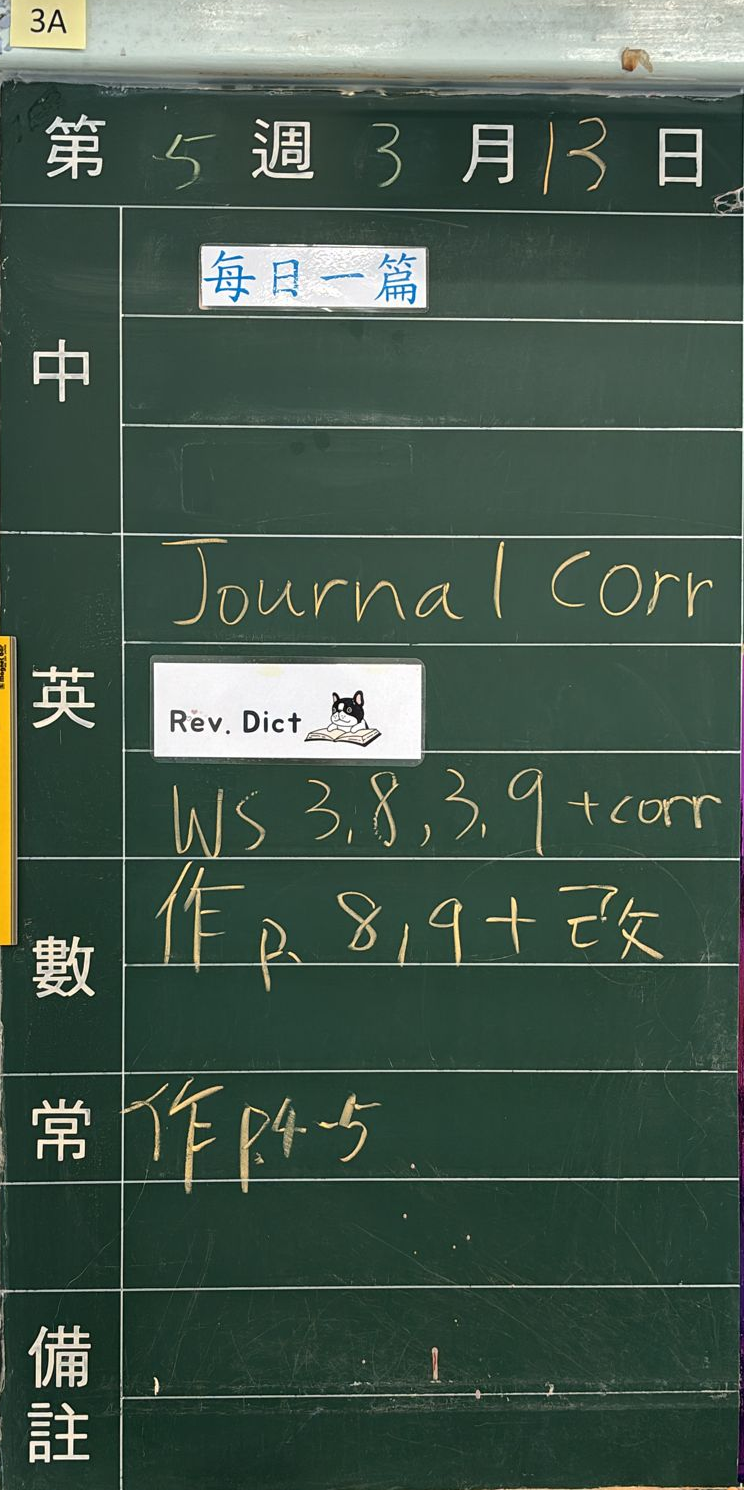 3A
第 5 週 3 月 13 日
中
每日一篇
英
Journal Corr
Rev. Dict
WS 3.8, 3.9 + corr
數
作 p. 8, 9 + 改
常
作 p.4-5
備註